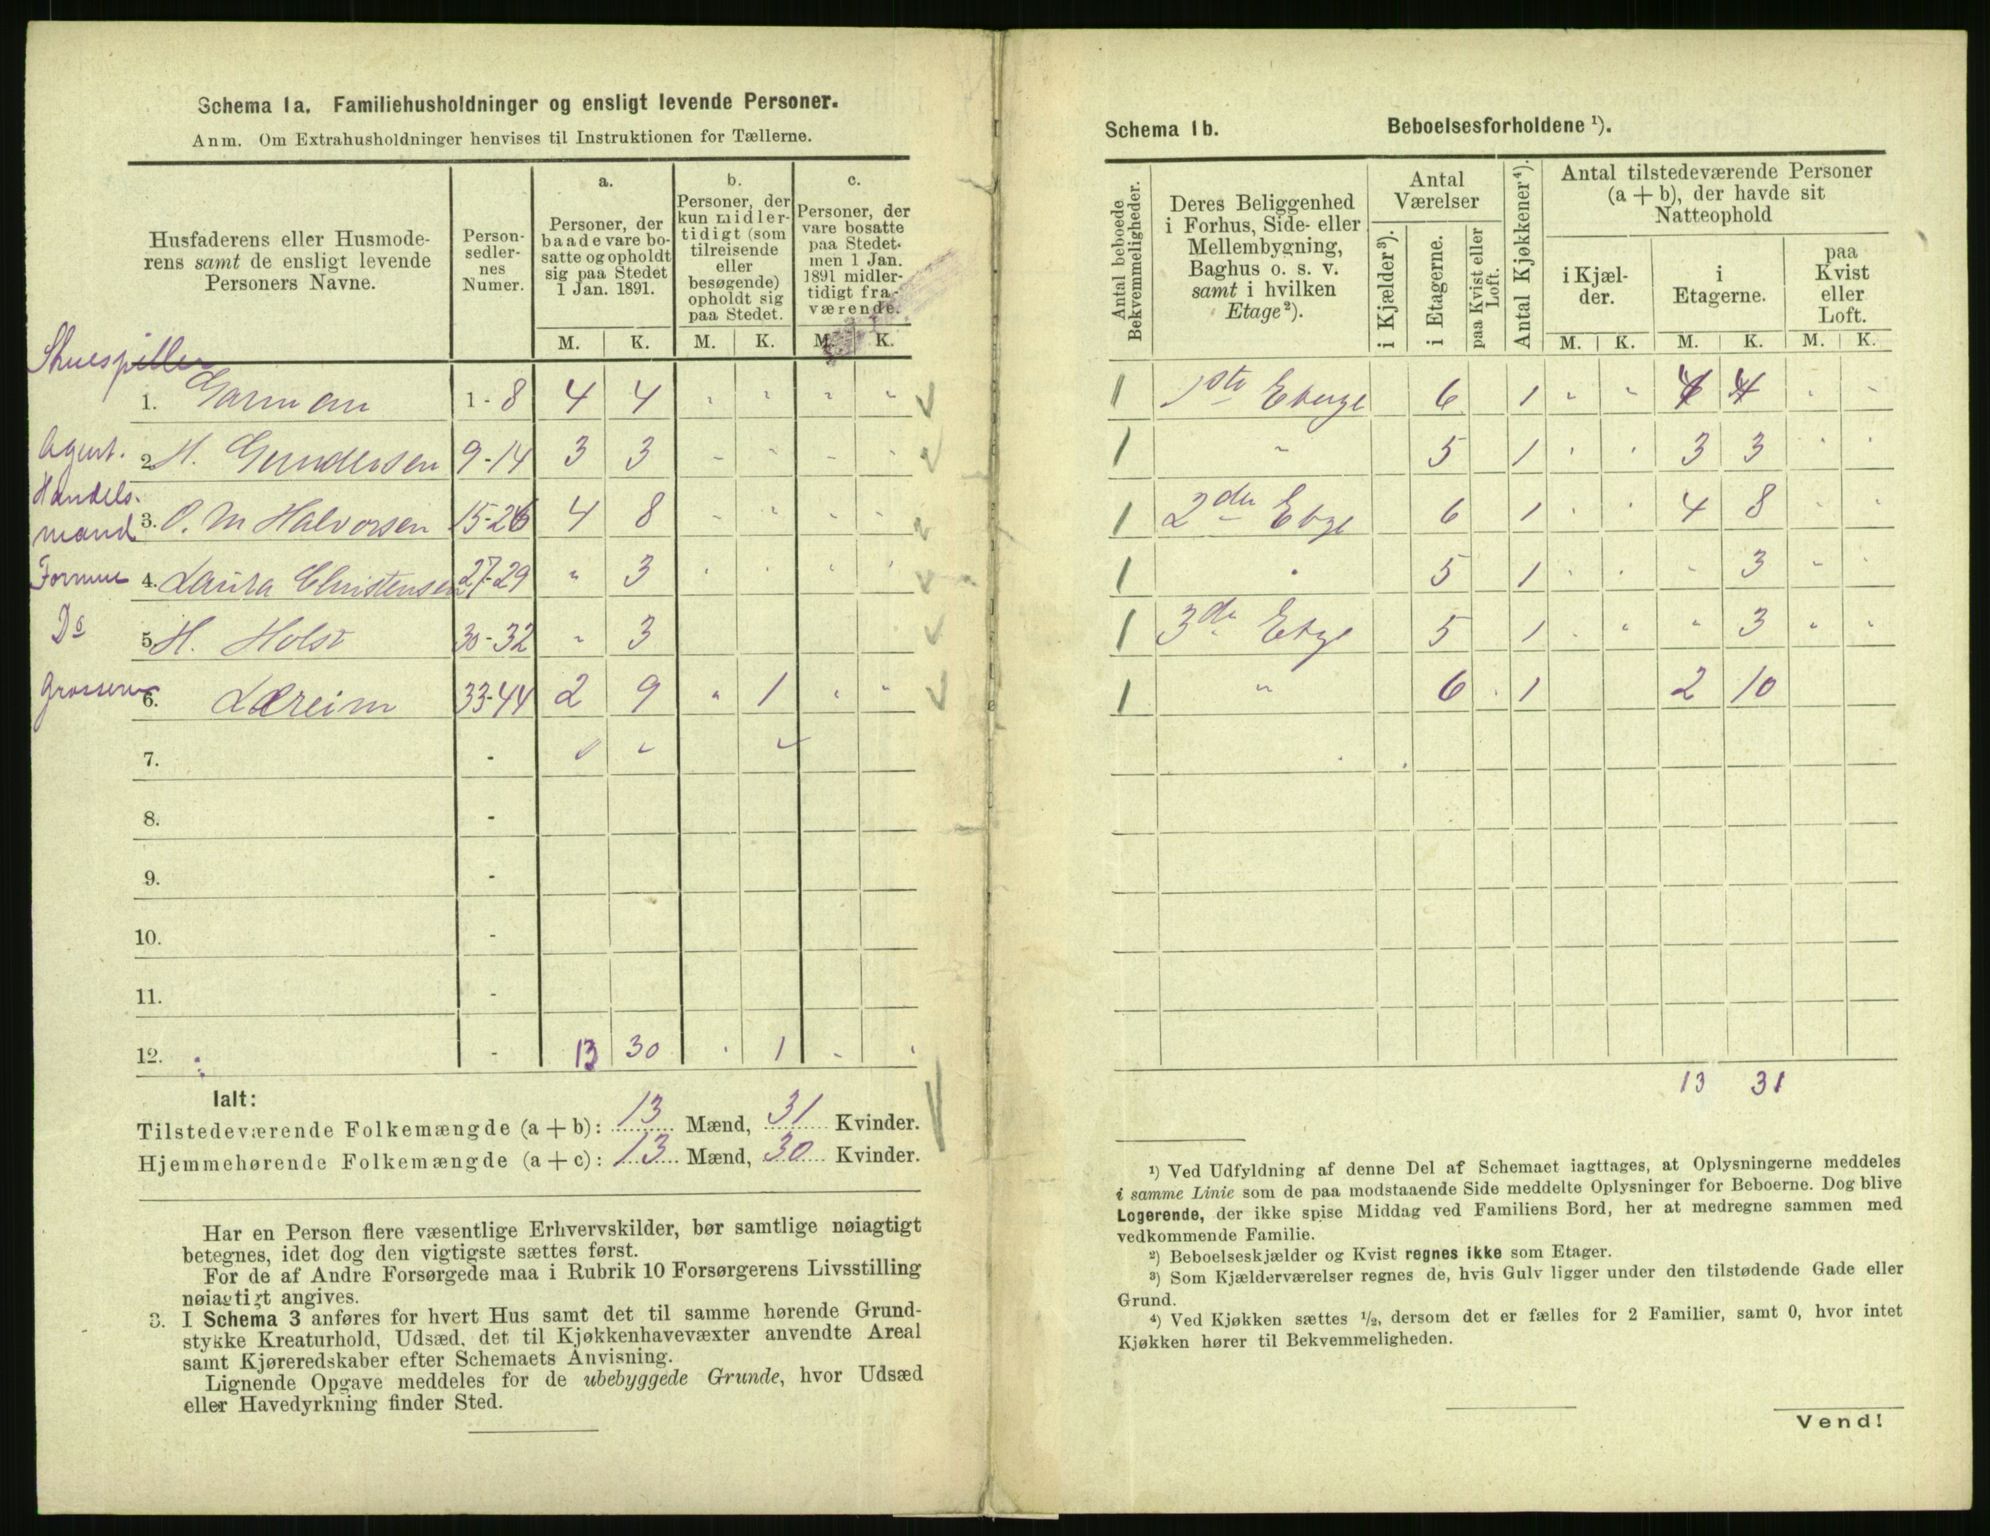 Schema 1a. Familiehusholdninger og ensligt levende Personer.
Anm. Om Extrahusholdninger henvises til Instruktionen for Tællerne.
Husfaderens eller Husmode-
rens samt de ensligt levende
Personers Navne.
Person-
sedler-
nes
Numer.
a.
Personer, der
baade vare bo-
satte og opholdt
sig paa Stedet
1 Jan. 1891.
b.
Personer, der
kun midler-
tidigt (som
tilreisende
eller
besøgende)
opholdt sig
paa Stedet.
c.
Personer, der
vare bosatte
paa Stedet
men 1 Jan.
1891 midler-
tidigt fra-
værende.
M. K. M. K. M. K.
Skuespiller
1. Garman 1-8 4 4 " " " "
Agent.
2. H. Gundersen 9-14 3 3 " " " "
Handels-
mand
3. O. M Halvorsen 15-26 4 8 " " " "
Formue
4. Laura Christensen 27-29 " 3 " " " "
Do
5. H. Holst 30-32 " 3
Grosserer
6. Læreim 33-44 2 9 " 1 " "
7. -
8. -
9. -
10. -
11. -
12. - 13 30 " 1 " "
Ialt:
Tilstedeværende Folkemængde (a + b): 13 Mænd, 31 Kvinder.
Hjemmehørende Folkemængde (a + c): 13 Mænd, 30 Kvinder.
Har en Person flere væsentlige Erhvervskilder, bør samtlige nøiagtigt
betegnes, idet dog den vigtigste sættes først.
For de af Andre Forsørgede maa i Rubrik 10 Forsørgerens Livsstilling
nøiagtigt angives.
3. I Schema 3 anføres for hvert Hus samt det til samme hørende Grund-
stykke Kreaturhold, Udsæd, det til Kjøkkenhavevæxter anvendte Areal
samt Kjøreredskaber efter Schemaets Anvisning.
Lignende Opgave meddeles for de ubebyggede Grunde, hvor Udsæd
eller Havedyrkning finder Sted.
Schema 1b. Beboelsesforholdene ¹).
Antal beboede
Bekvemmeligheder.
Deres Beliggenhed
i Forhus, Side- eller
Mellembygning,
Baghus o. s. v.
samt i hvilken
Etage ²).
Antal
Værelser
i Kjælder ³).
i Etagerne.
paa Kvist eller
Loft.
Antal Kjøkkener ⁴).
Antal tilstedeværende Personer
(a + b), der havde sit
Natteophold
i Kjæl-
der.
i
Etagerne.
paa
Kvist
eller
Loft.
M. K. M. K. M. K.
1 1ste Etage 6 1 " " 4 4 " "
1 " 5 1 " " 3 3 " "
1 2den Etge 6 1 " " 4 8 " "
1 " 5 1 " " " 3 " "
1 3de Etge 5 1 " " " 3 " "
1 " 6 1 2 10
13 31
¹) Ved Udfyldning af denne Del af Schemaet iagttages, at Oplysningerne meddeles
i samme Linie som de paa modstaaende Side meddelte Oplysninger for Beboerne. Dog blive
Logerende, der ikke spise Middag ved Familiens Bord, her at medregne sammen med
vedkommende Familie.
²) Beboelseskjælder og Kvist regnes ikke som Etager.
³) Som Kjælderværelser regnes de, hvis Gulv ligger under den tilstødende Gade eller
Grund.
⁴) Ved Kjøkken sættes ½, dersom det er fælles for 2 Familier, samt 0, hvor intet
Kjøkken hører til Bekvemmeligheden.
Vend!